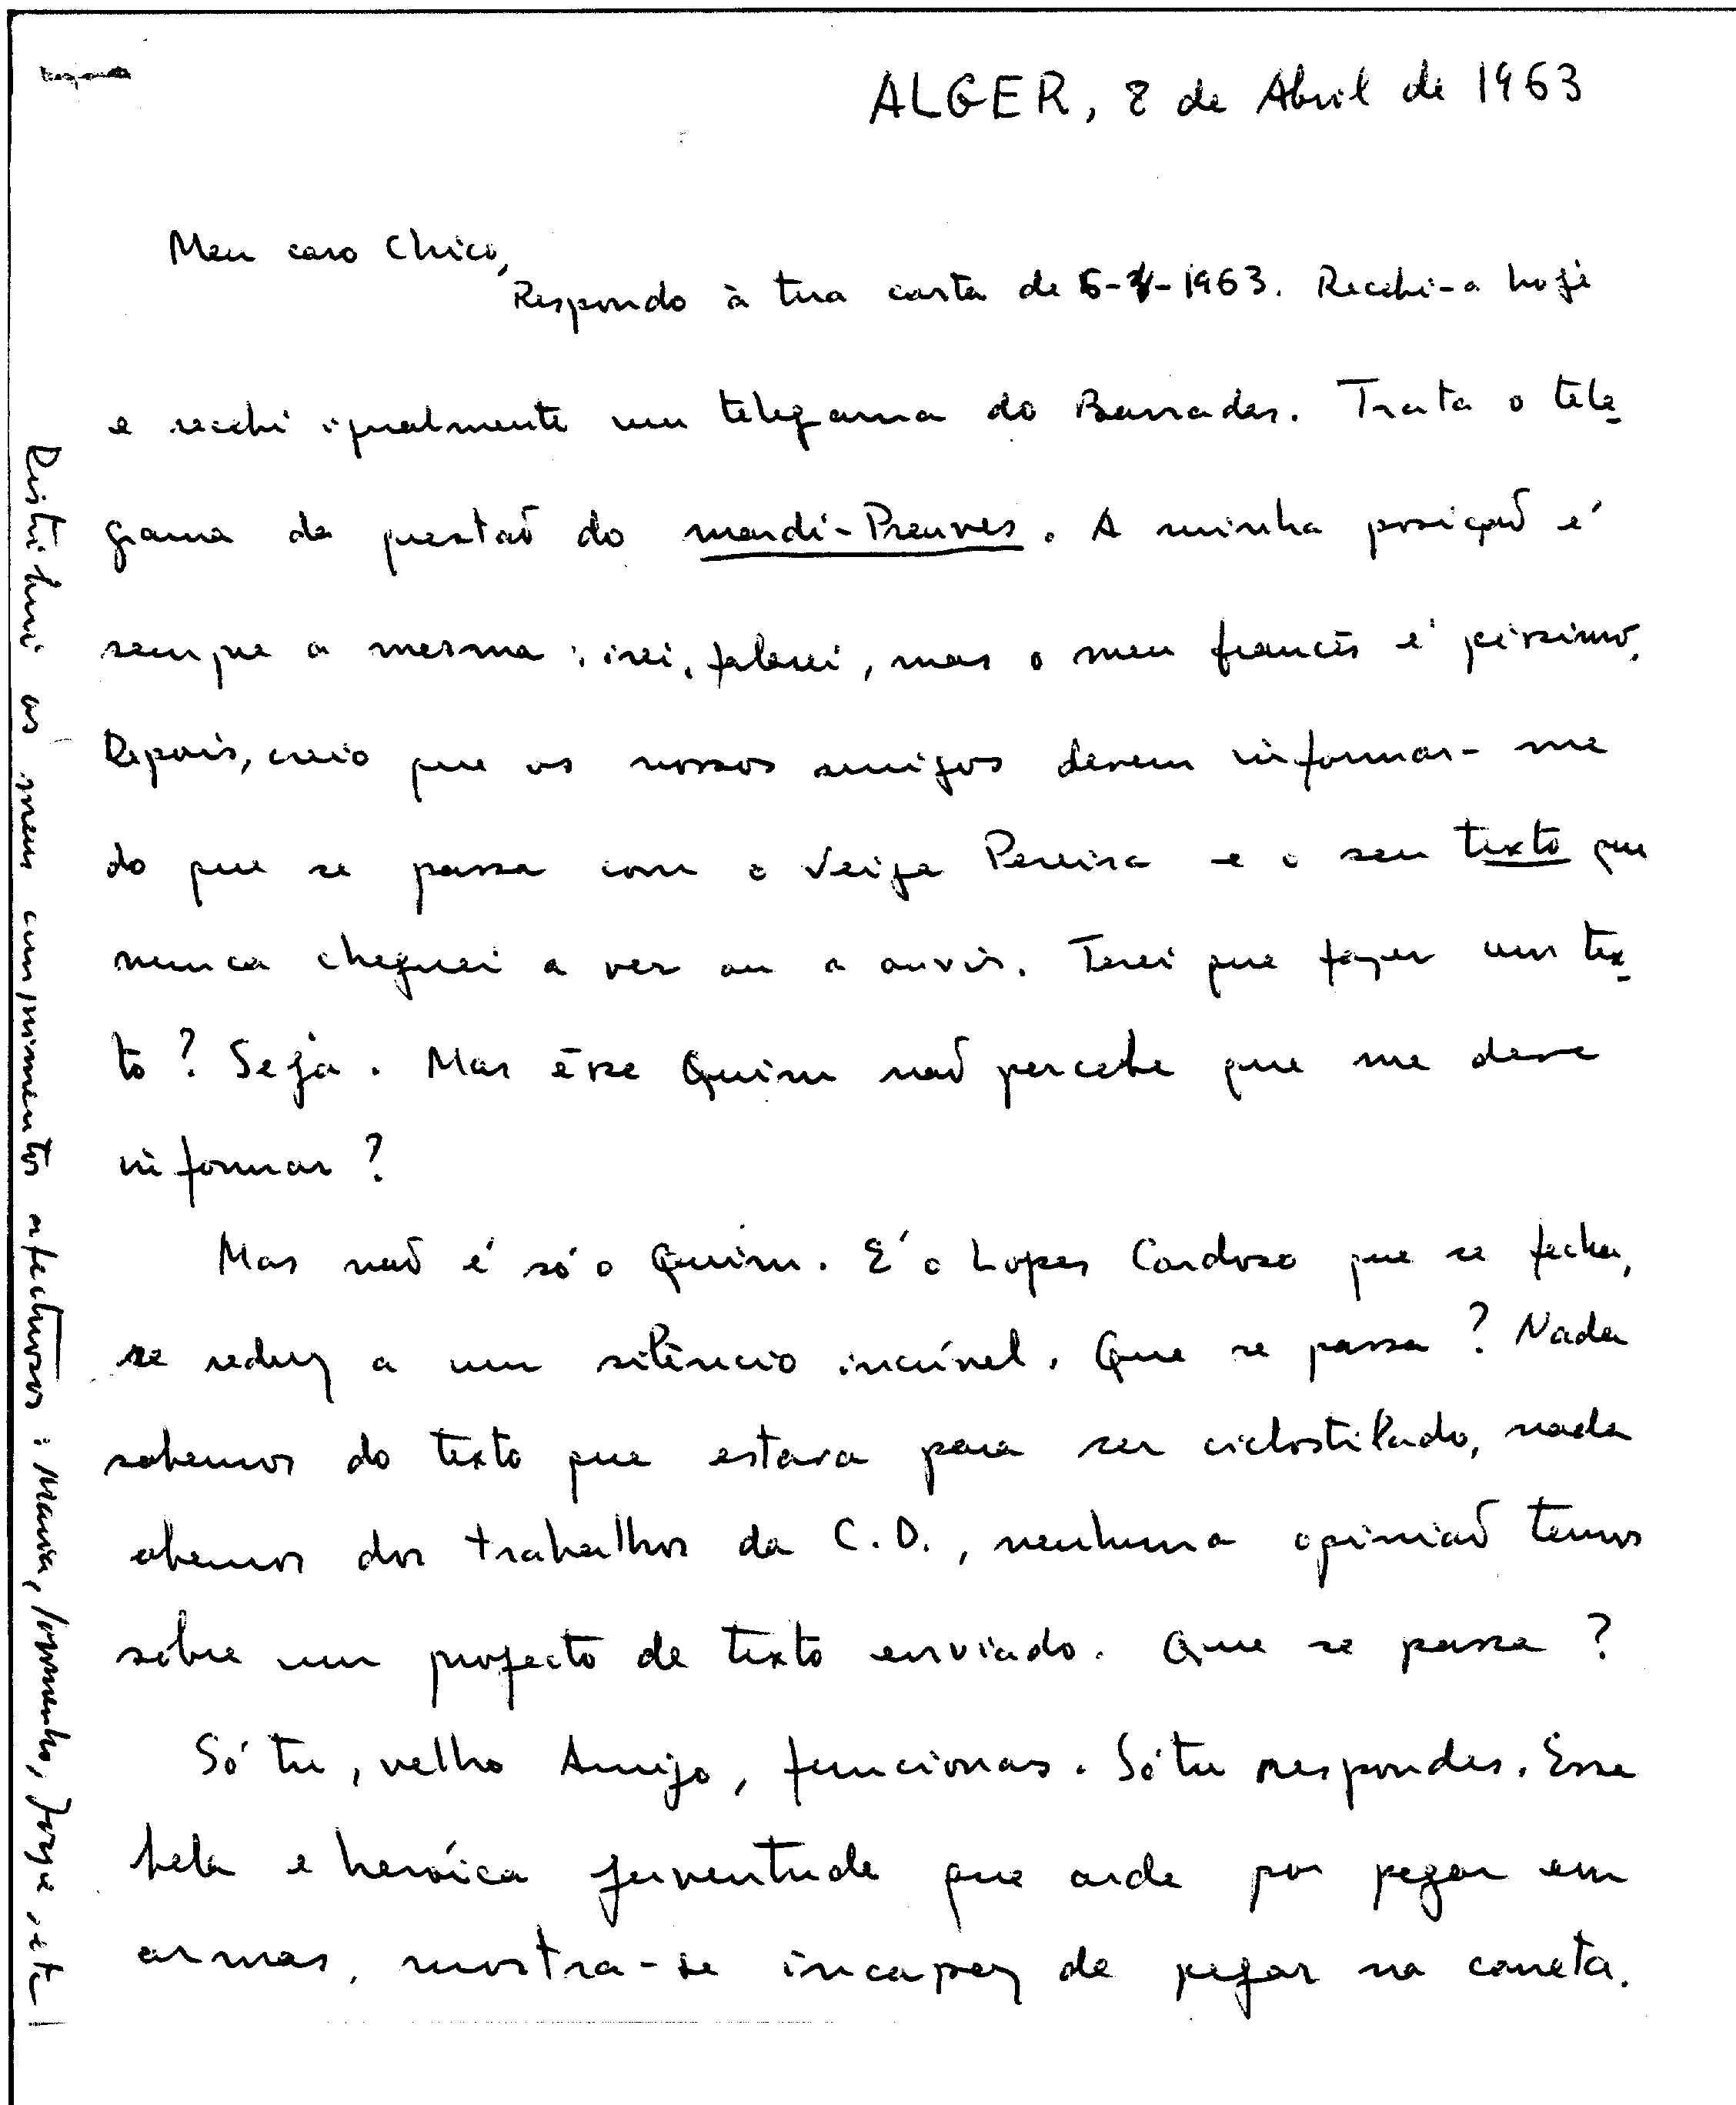 ALGER, 8 de Abril de 1963
Meu caro Chico,
Respondo à tua carta de 6-4-1963. Recebi-a hoje
e recebi igualmente um telegrama do Barradas. Trata o tele-
grama da questaõ do mardi-Preuves. A minha posiçaõ é
sempre a mesma: irei, falarei, mas o meu francês é péssimo.
Depois, creio que os nossos amigos devem informar-me
do que se passa com o Veiga Pereira e o seu texto que
nunca cheguei a ver ou a ouvir. Terei que fazer um tex-
to? Seja. Mas êsse Quim naõ percebe que me deve
informar?
Mas naõ é só o Quim. É o Lopes Cardoso que se fecha,
se reduz a um silêncio incrível. Que se passa? Nada
sabemos do texto que estava para ser ciclostilado, nada
abemos dos trabalhos da C.D., nenhuma opiniaõ temos
sôbre um projecto de texto enviado. Que se passa?
Só tu, velho Amigo, funcionas. Só tu respondes. Essa
bela e heróica juventude que arde por pegar em
armas, mostra-se incapaz de pegar na caneta.
Distribui os meus cumprimentos afectuosos: Maria, Jorge, etc!